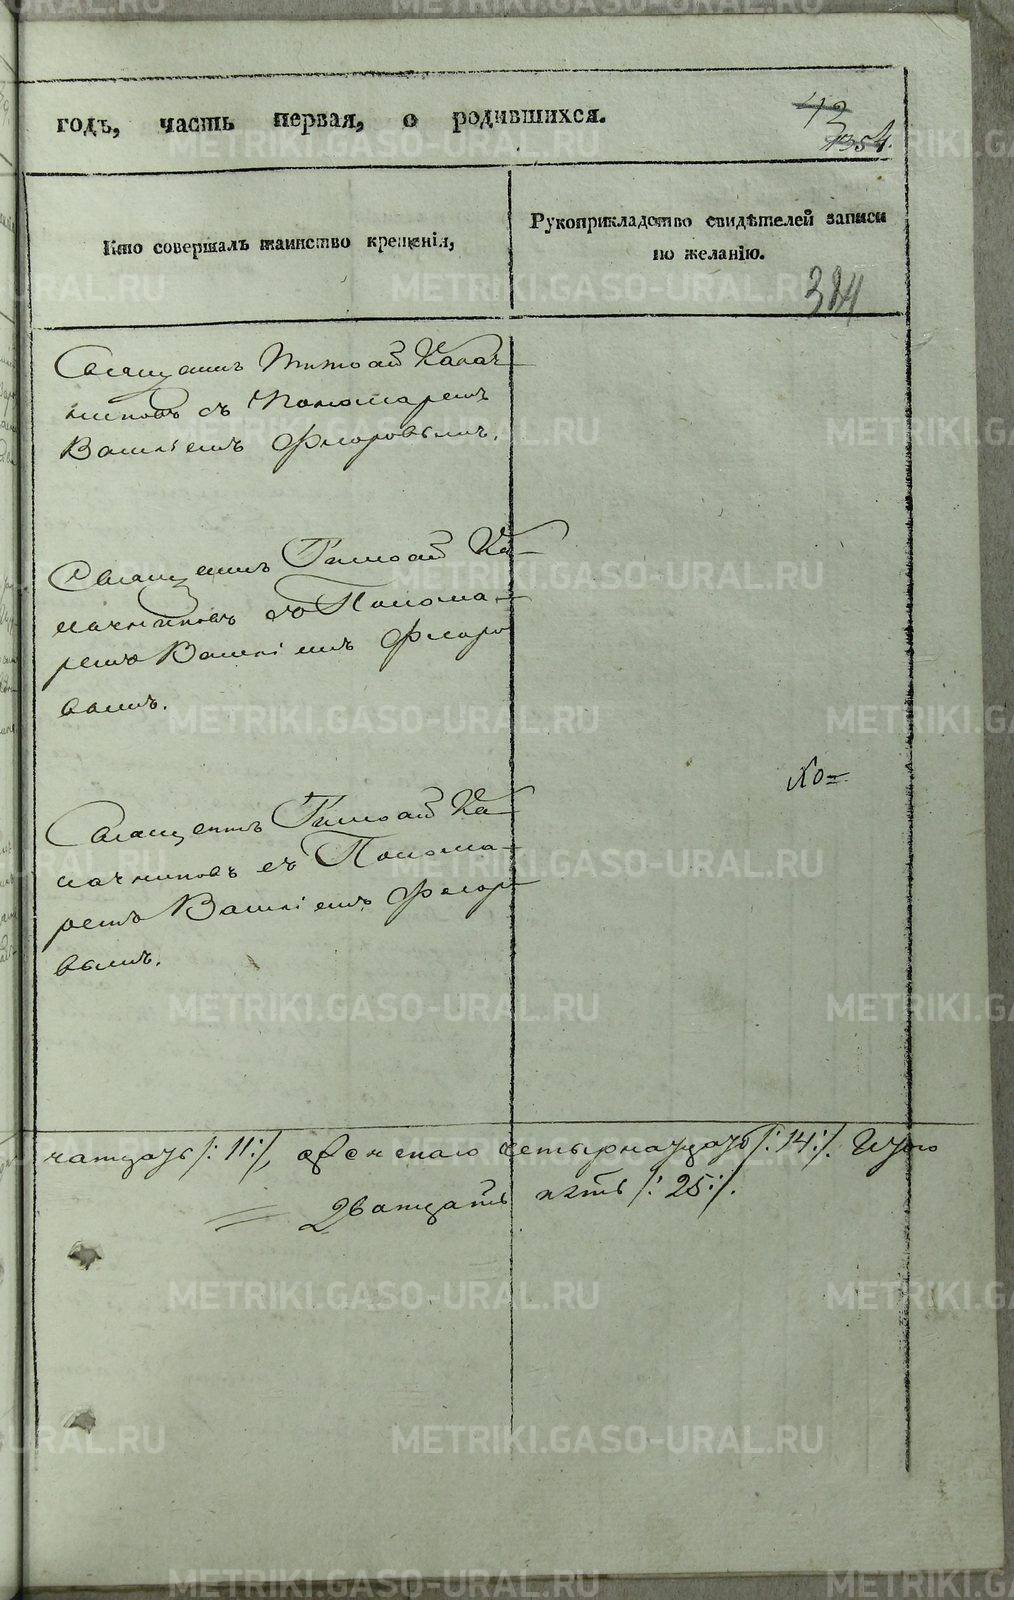 годъ, часть первая, о родившихся.
43
1354.
Кто совершалъ таинство крещенія,
Рукоприкладство свидѣтелей записи
по желанію.
384
Священникъ Тимофей Калач
никовъ съ Пономаремъ
Василіемъ Флоровымъ.
Священникъ Тимофей Ка-
лачниковъ съ Понома-
ремъ Василіемъ Флоро
вымъ.
Священникъ Тимофей Ка-
лачниковъ съ Понома-
ремъ Василіемъ Флоро
вымъ.
Хо=
натцать /:11:/, женскаго четырнатцать /:14:/. Итого
Дватцать пять /:25:/.
METRIKI.GASO-URAL.RU